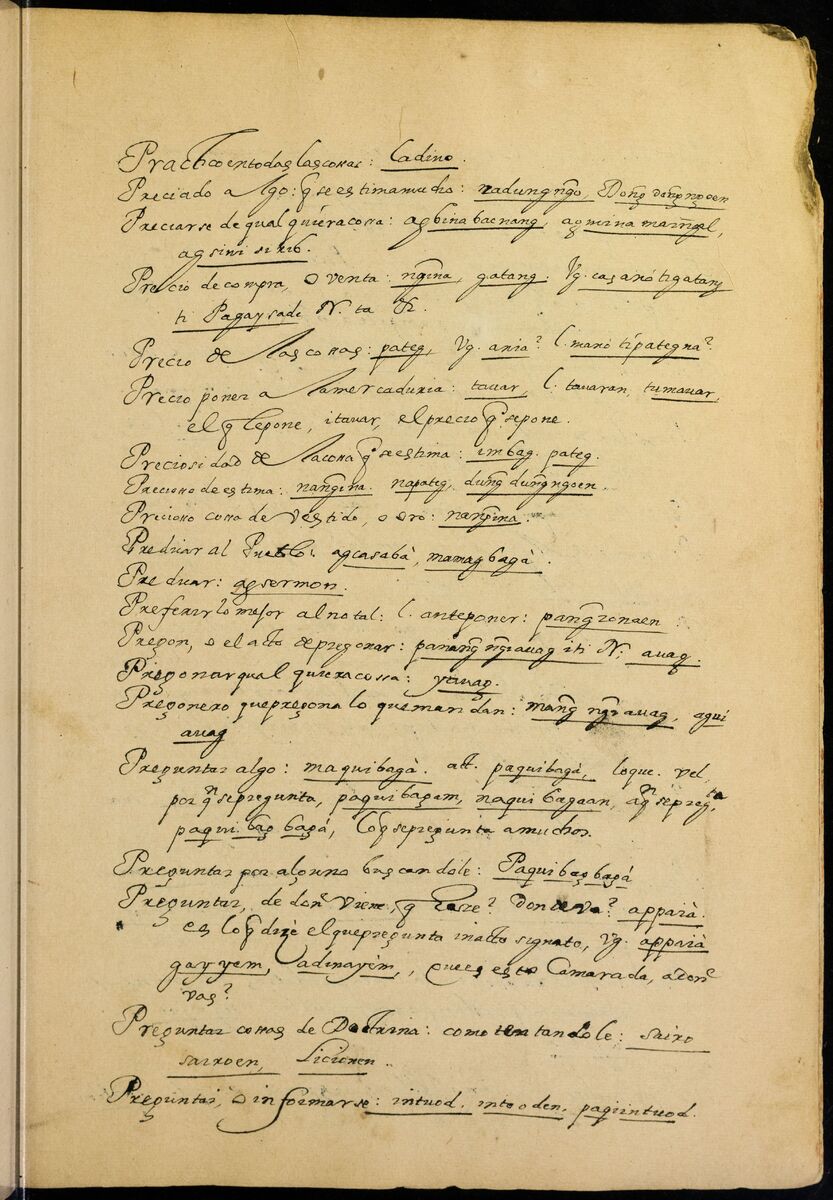 Practico en todas las cossas: Ladino.
Preciado a lgo: q̃ se estima mucho: nadungngo, Dong̃ dong̃ngoen
Preciarse de qual quiera cossa: agbina bacnang, agmina maing̃el,
agsini sirib.
Precio de compra, o venta: ng̃ina, gatang. Vg. casanó ti gatang
ti Pagay sadi N. ta
Precio de las cossas: pateg, Vg. ania? l. manó ti pategna?
Precio poner a la mercaduria: tauar, l. tauaran, tumauar,
el q̃ le pone, itauar, el precio q̃ se pone.
Preciosidad de la cossa q̃ se estima: imbag. pateg.
Precioso de estima: nang̃ina. napateg, dung̃ dung̃ngoen.
Precioso cossa de vestido, o oro: nang̃ina.
Predicar al Pueblo: agcasabà, mamagbagà.
Predicar: agsermon.
Preferir lo mejor al no tal: l. anteponer: pang̃ronaen
Pregon, o el acto de pregonar: panang̃ ng̃iauag iti N. auag.
Pregonar qual quiera cossa: yauag.
Pregonero que pregona lo que man dan: mang̃ ng̃iauag, agui
auag
Preguntar algo: maquibagà. att. paquibagà, loque. vel,
por qn se pregunta, paquibagam, naqui bagaan, a qn se pregta
paqui.bag bagá, lo q̃ se pregunta a muchos.
Preguntar por alguno buscandole: Paquibagbagá
Preguntar, de donde Viene, q̃ hasze? donde va? appaià.
es lo q̃ dize el que pregunta in acto signato, Vg. appaià
gayyem, adinayèm, , que es esto Camarada, a donde
vas?
Preguntar cossas de Doctrina: como tentandole: sairo
sairoen, Licionen.
Preguntar, o informarse: intuod. intooden, pagintuod.